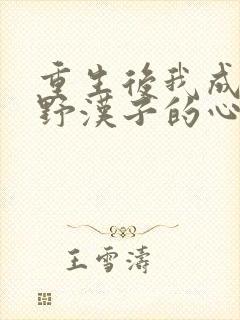 重生後我成
野漢子的心
王雪濤